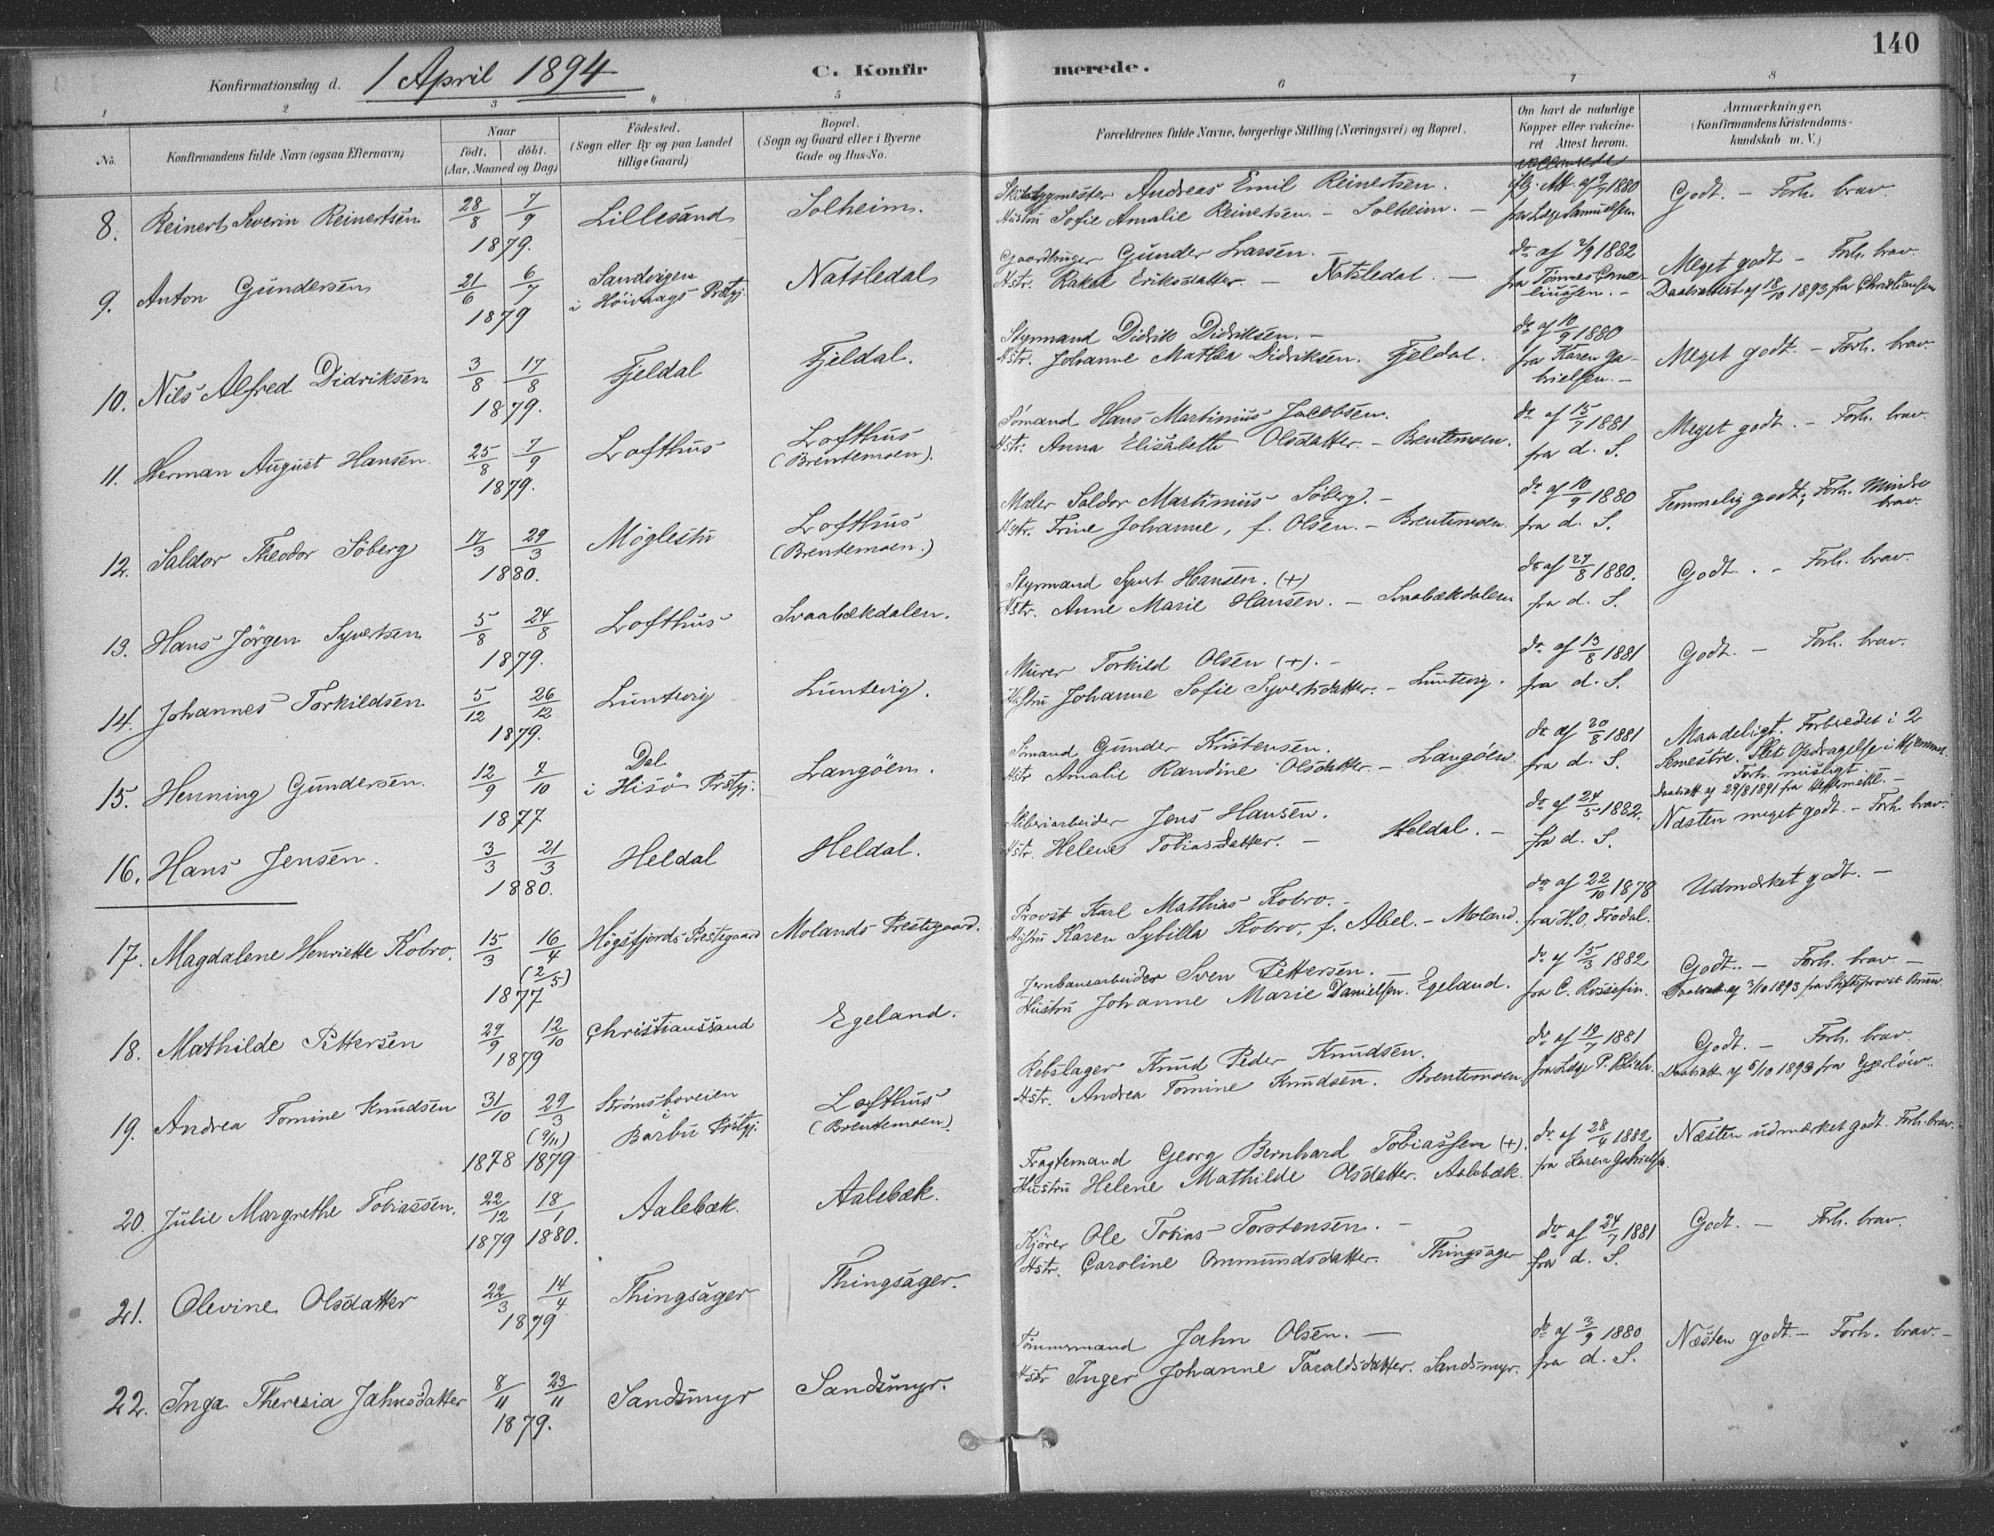 140
Konfirmationsdag d. 1 April 1894
C. Konfirmerede.
1 2 3 4 5 6 7 8
No.
Konfirmandens fulde Navn (ogsaa Efternavn)
Naar
födt. döbt.
(Aar, Maaned og Dag)
Födested.
(Sogn eller By og paa Landet
tillige Gaard)
Bopæl.
(Sogn og Gaard eller i Byerne
Gade og Hus-No.
Forældrenes fulde Navne, borgerlige Stilling (Næringsvei) og Bopæl.
Om havt de naturlige
Kopper eller vakcine-
ret Attest herom.
Anmærkninger.
(Konfirmandens Kristendoms-
kundskab m. V.)
8. Reinert Severin Reinertsen 28/8 7/9 1879. Lillesand Solheim.
Andreas Emil Reinertsen.
Hustru Sofie Amalie Reinertsen. – Solheim. –
1880
Godt. – Forh. brav.
9. Anton Gundersen 21/6 6/7 1879 Sandvigen
i Høivaags Prstgj. Natsledal
Gaardbruger Gunder Larssen. –
Hstr. Rakel Eriksdatter. – Natsledal. –
do af 2/9 1882
fra Tønnes Corne-
liussen. –
Meget godt – Forh. brav.
Daabsattest af 18/10 1893 fra Christiansen
10. Nils Alfred Didriksen 3/8 17/8 1879. Fjeldal Fjeldal.
Styrmand Didrik Didriksen. –
Hstr. Johanne Mathea Didriksen. Fjeldal.
do af 10/9 1880
fra Karen Ga-
brielsen. –
Meget godt. – Forh. brav.
11. Herman August Hansen. 25/8 7/9 1879. Lofthus Lofthus
(Brentemoen).
Sömand Hans Martinius Jacobsen.
Hstr. Anna Elisabeth Olsdatter – Brentemoen.
do af 15/7 1881
fra d. S.
Meget godt. – Forh. brav.
12. Saldor Theodor Söberg 17/3 29/3 1880. Möglestu Lofthus
(Brentemoen.)
Maler Saldor Martinius Söberg. –
Hstr. Trine Johanne, f. Olsen. – Brentemoen.
do af 10/9 1880
fra d. S.
Temmelig godt; Forh. Mindre
brav.
13. Hans Jörgen Syvertsen 5/8 24/8 1879. Lofthus Svaabækdalen.
Styrmand Syvert Hansen. (+)
Hstr. Anne Marie Hansen. – Svaabækdalen
do af 27/8 1880.
fra d. S.
Godt. – Forh. brav.
14. Johannes Torkildsen 5/12 26/12 1879. Luntevig Luntevig.
Murer Torkild Olsen (+). –
Hustru Johanne Sofie Syvertsdatter. – Luntevig.
do af 13/8 1881
fra d. S.
Godt. – Forh. brav.
15. Henning Gundersen. 12/9 7/10 1877 Dal
i Hisö Prstgj. Langöen.
Sömand Gunder Kristensen.
Hstr Amalie Randine Olsdatter – Langöen
do af 20/8 1881
fra d. S.
Maadeligt. Forberedet i 2
Semestre. Slet Opdragelse i Hjemmet.
Forh. misligt
Daabsatt af 29/8 1891 fra
16. Hans Jensen. 3/3 21/3 1880. Heldal Heldal.
Jens Hansen.
Hstr. Helene Tobiasdatter. – Heldal. –
do af 24/5 1882.
fra d. S.
Næsten meget godt. – Forh. brav.
17. Magdalene Henriette Kobro. 15/3 16/4 (2/5) 1877 Högsfjords Prestegaard Molands Prestegaard.
Provst Karl Mathias Kobro. –
Hustru Karen Sybilla Kobro, f. Abel. – Moland.
do af 22/10 1878
fra H. O. Frodal.
Udmærket godt. –
18. Mathilde Pettersen 29/9 12/10 1879 Christianssand Egeland.
Jernbanearbeider Sven Pettersen. –
Hustru Johanne Marie Danielsen. Egeland.
do af 15/3 1882
fra C.
Godt. – Forh. brav. –
Daabsatt af 3/10 1893 fra Stiftsprovst
19. Andrea Tomine Knudsen 31/10 29/3 (9/11) 1878 1879 Strömsboveien
i
Barbu Prstgj. Lofthus
(Brentemoen)
Rebslager Knud Peder Knudsen.
Hstr. Andrea Tomine Knudsen. Brentemoen
do af 19/7 1881
fra Læge P.
Godt. – Forh. brav.
Daabsatt af 5/10 1893 fra
20. Julie Margrethe Tobiassen. 22/12 18/1 1879 1880. Aalebæk. Aalebæk.
Fragtemand Georg Bernhard Tobiassen (+).
Hustru Helene Mathilde Olsdatter. Aalebæk.
do af 28/4 1882
fra Karen Gabrielsen.
Næsten udmærket godt. Forh. brav.
21. Olevine Olsdatter 22/3 14/4 1879 Thingsager Thingsager.
Kjörer Ole Tobias Torstensen. –
Hstr. Caroline Ommundsdatter. Thingsager
do af 24/7 1881
fra d. S.
Godt. – Forh. brav.
22. Inga Theresia Jahnsdatter 8/11 23/11 1879. Sandsmyr Sandsmyr.
Tømmermand Jahn Olsen. –
Hstr Inger Johanne Taraldsdatter. Sandsmyr.
do af 3/9 1880
fra d. S.
Næsten godt – Forh. brav. –